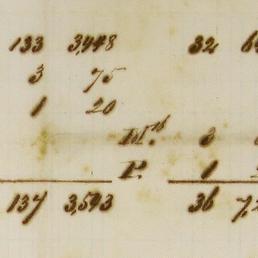 133 3,448 32
3 75
1 20
3
P. 1
137 3,543 36